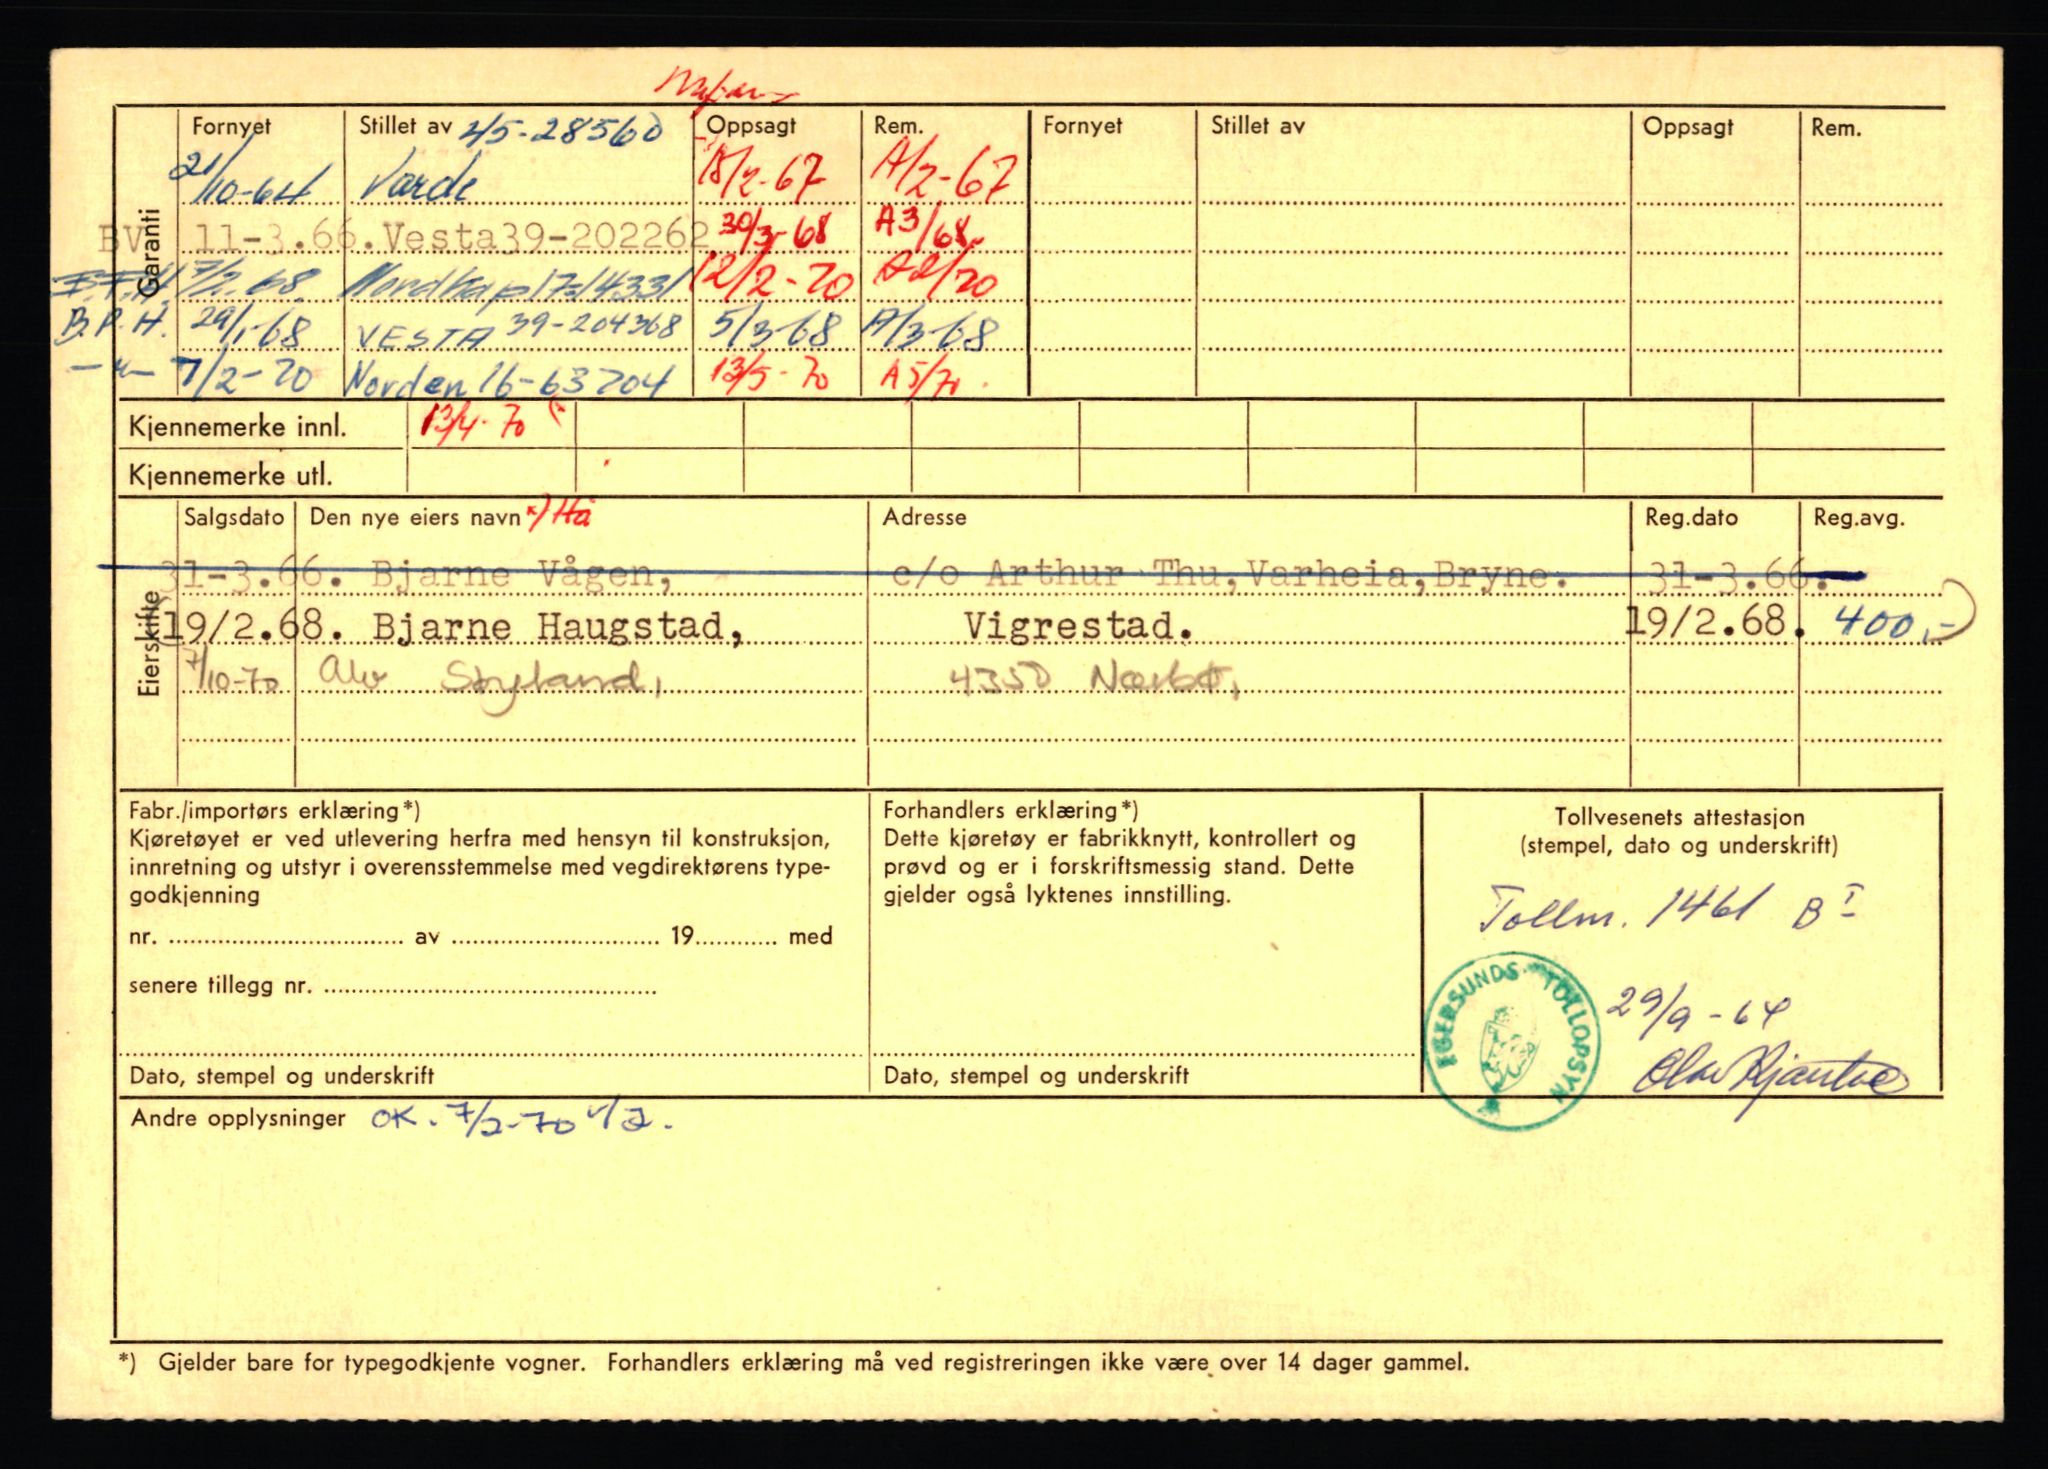 Fornyet Stillet av 45-28560 Oppsagt Rem. Fornyet Stillet av Oppsagt Rem.
21/10-64 Varde 15/2-67 A/2-67
BV 11-3.66. Vesta39-202262 30/3-68 A3/68.
7/2.68. Nordkap 1714331 12/2-70 A2/70
B.P.H. 29/1-68 VESTA 39-204368 5/3-68 A/3-68
7/2-70 Norden 16-63704 13/5-70 A5/70
Garanti
Kjennemerke innl. 13/4-70
Kjennemerke utl.
Salgsdato Den nye eiers navn x) Hå Adresse Reg.dato Reg.avg.
31-3.66. Bjarne Vågen, c/o Arthur Thu,Varheia,Bryne. 31-3.66.
19/2.68. Bjarne Haugstad, Vigrestad. 19/2.68. 400,-
7/10-70 Alv 4350 Nærbø,
Eierskifte
Fabr./importørs erklæring*)
Kjøretøyet er ved utlevering herfra med hensyn til konstruksjon,
innretning og utstyr i overensstemmelse med vegdirektørens type-
godkjenning
nr. av 19 med
senere tillegg nr.
Dato, stempel og underskrift
Forhandlers erklæring*)
Dette kjøretøy er fabrikknytt, kontrollert og
prøvd og er i forskriftsmessig stand. Dette
gjelder også lyktenes innstilling.
Dato, stempel og underskrift
Tollvesenets attestasjon
(stempel, dato og underskrift)
Tollm. 1461 B I
EGERSUNDS TOLLOPSYN
29/9-64
Andre opplysninger OK. 7/2-70
*) Gjelder bare for typegodkjente vogner. Forhandlers erklæring må ved registreringen ikke være over 14 dager gammel.